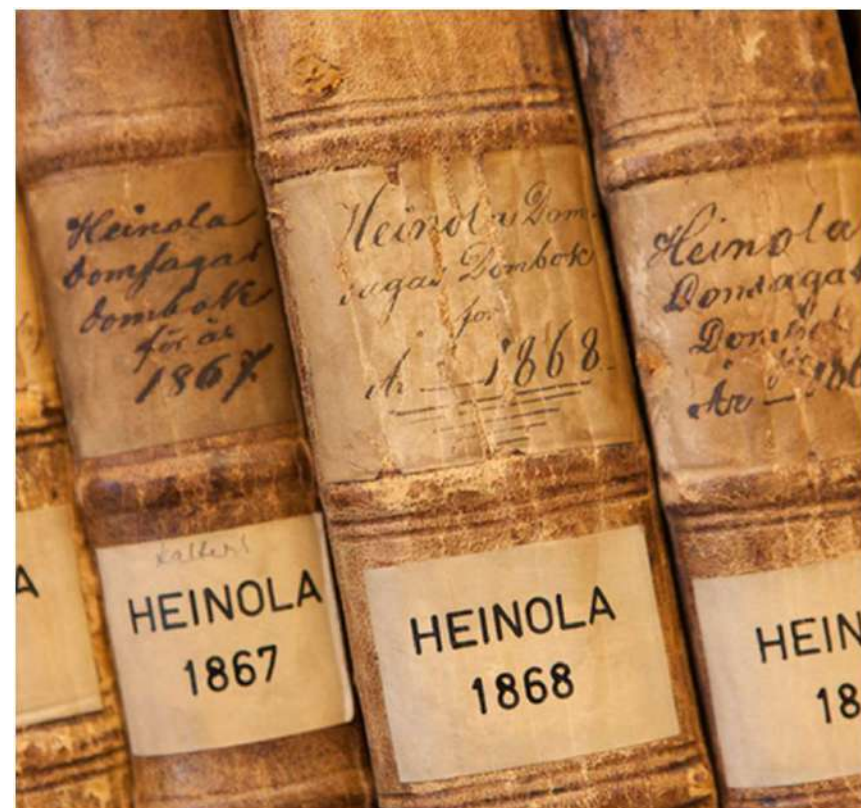 A
Heinola
domsagas
dombok
för år
1867
HEINOLA
1867
Heinola Dom-
sagas Dombok
för
År 1868
HEINOLA
1868
Heinola
Domsagas
År
HEIN
18